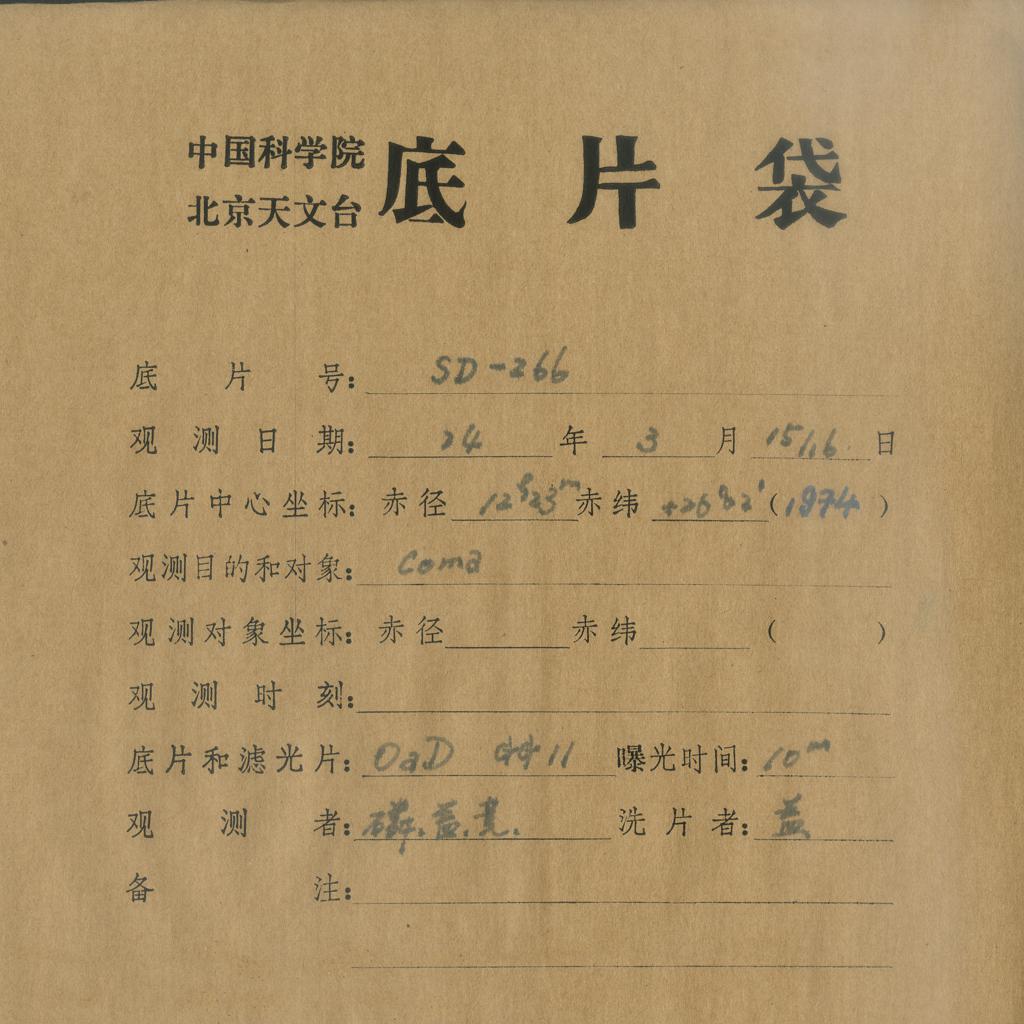 中国科学院
北京天文台 底片袋
底片号: SD-266
观测日期: 74 年 3 月 15/16 日
底片中心坐标: 赤径 12h23m 赤纬 +26°32' (1974)
观测目的和对象: Coma
观测对象坐标: 赤径 赤纬 ( )
观测时刻:
底片和滤光片: OaD 11 曝光时间: 10m
观测者: 盖. 洗片者: 盖
备注: